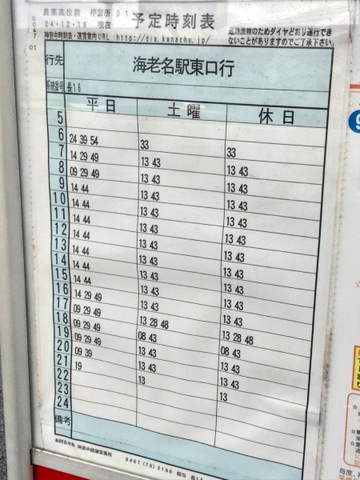 0047
01
農業高校前 停留所 01
24-12-16 在
予定時刻表
神奈中時刻表・運賃案内URL http://dia.kanachu.jp/
道路混雑のためダイヤどおり運行でき
ないことがありますのでご了承下さい。
行先 海老名駅東口行
系統番号 長16
平日 土曜 休日
5
6 24 39 54 33 33
7 14 29 49 13 43 13 43
8 09 29 49 13 43 13 43
9 14 44 13 43 13 43
10 14 44 13 43 13 43
11 14 44 13 43 13 43
12 14 44 13 43 13 43
13 14 44 13 43 13 43
14 14 44 13 43 13 43
15 14 44 13 43 13 43
16 14 29 49 13 43 13 43
17 09 29 49 13 43 13 43
18 09 29 49 13 28 48 13 28 48
19 09 29 49 08 43 08 43
20 09 39 13 43 13 43
21 19 13 43 13 43
22 13 13
23
24
備考
お問合せ先 神奈中